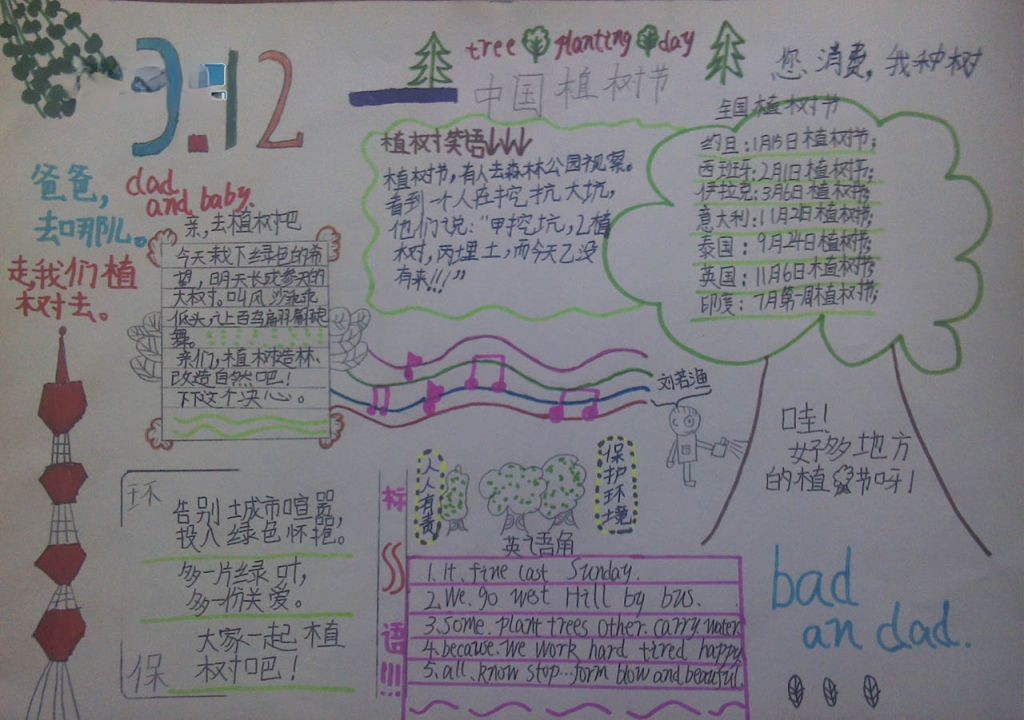 3.12
tree planting day
中国植树节
您消费，我种树
爸爸，
去哪儿。
走，我们植
树去。
dad
and baby.
亲，去植树吧
今天栽下绿色的希
望，明天长成参天的
大树。叫风沙乖乖
低头，让百鸟翩翩起
舞。
亲们，植树造林、
改造自然吧！
下下这个决心。
植树笑语↓↓↓
植树节，有人去森林公园视察。
看到一个人在挖坑大坑，
他们说：“甲挖坑，乙植
树，丙埋土，而今天乙没
有来!!!”
全国植树节
约旦：1月15日植树节；
西班牙：2月1日植树节；
伊拉克：3月6日植树节；
意大利：11月21日植树节；
泰国：9月24日植树节；
英国：11月6日植树节；
印度：7月第一周植树节；
哇！
好多地方
的植树节呀！
刘若渔
环
保
告别城市喧嚣，
投入绿色怀抱。
多一片绿叶，
多一份关爱。
大家一起植
树吧！
标
语!!!
人人有责
保护环境
英语角
1. It. fine last Sunday.
2. We. go west Hill by bus.
3. Some. plant trees other. carry. water.
4. because. we work hard tired happy
5. all. know stop...form blow and beautiful.
bad
an dad.